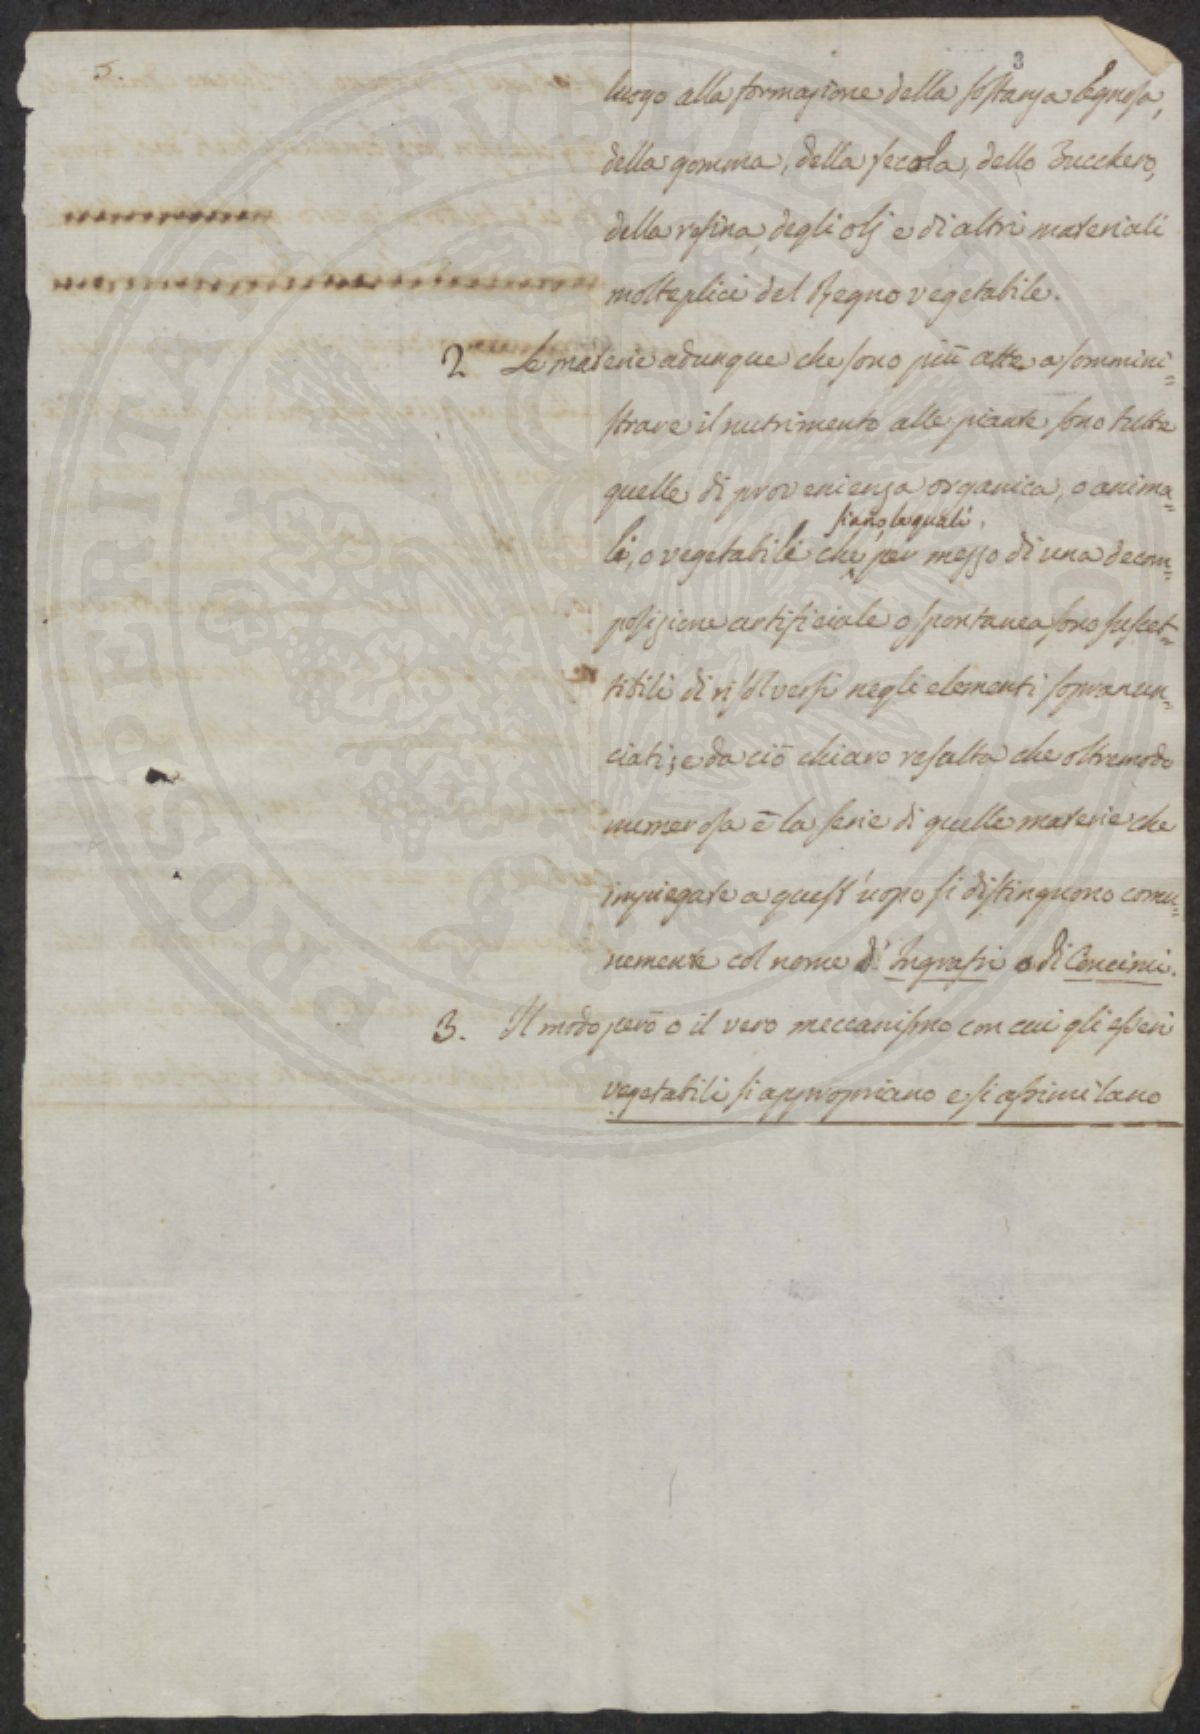 5.
3
luogo alla formazione della sostanza legnosa,
della gomma, della fecola, dello Zucchero,
della resina, degli olj e di altri materiali
molteplici del Regno vegetabile.
2 Le materie adunque che sono più atte a sommini=
strare il nutrimento alle piante sono tutte
quelle di provenienza organica, o anima=
siano, le quali,
li, o vegetabili che per mezzo di una decom=
posizione artificiale o spontanea sono suscet=
tibili di risolversi negli elementi sopranun=
ciati; e da ciò chiaro resulta che oltremodo
numerosa è la serie di quelle materie che
impiegate a quest'uopo si distinguono comu=
nemente col nome d'Ingrassi o di Concimi.
3. Il modo però o il vero meccanismo con cui gli esseri
vegetabili si appropriano e si assimilano
PROSPERITATI PUBLICAE AUGENDAE